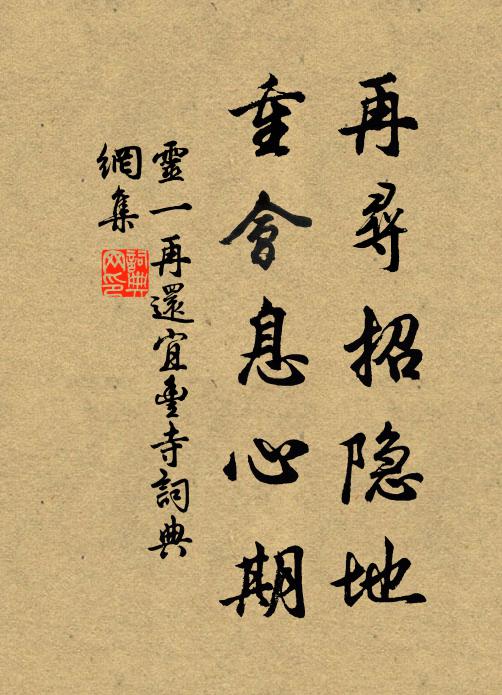 再尋招隐地
重會息心期
靈一再還宜豐寺詞典
網集
詞典
网印